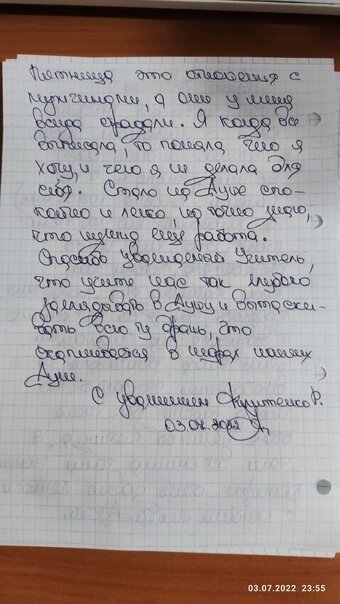 Пятница это отношения с
мужчинами, а они у меня
всегда страдали. Я когда все
выписала, то поняла чего я
хочу и чего я не делала для
себя. Стало на Душе спо-
койно и легко, но точно знаю,
что нужна ещё работа.
Спасибо уважаемый Учитель,
что учите нас так глубоко
заглядывать в Душу и вытаски-
вать всю ту дрянь, что
скапливается в недрах наших
Душ.
С уважением Р.
03.07.2022
03.07.2022 23:55